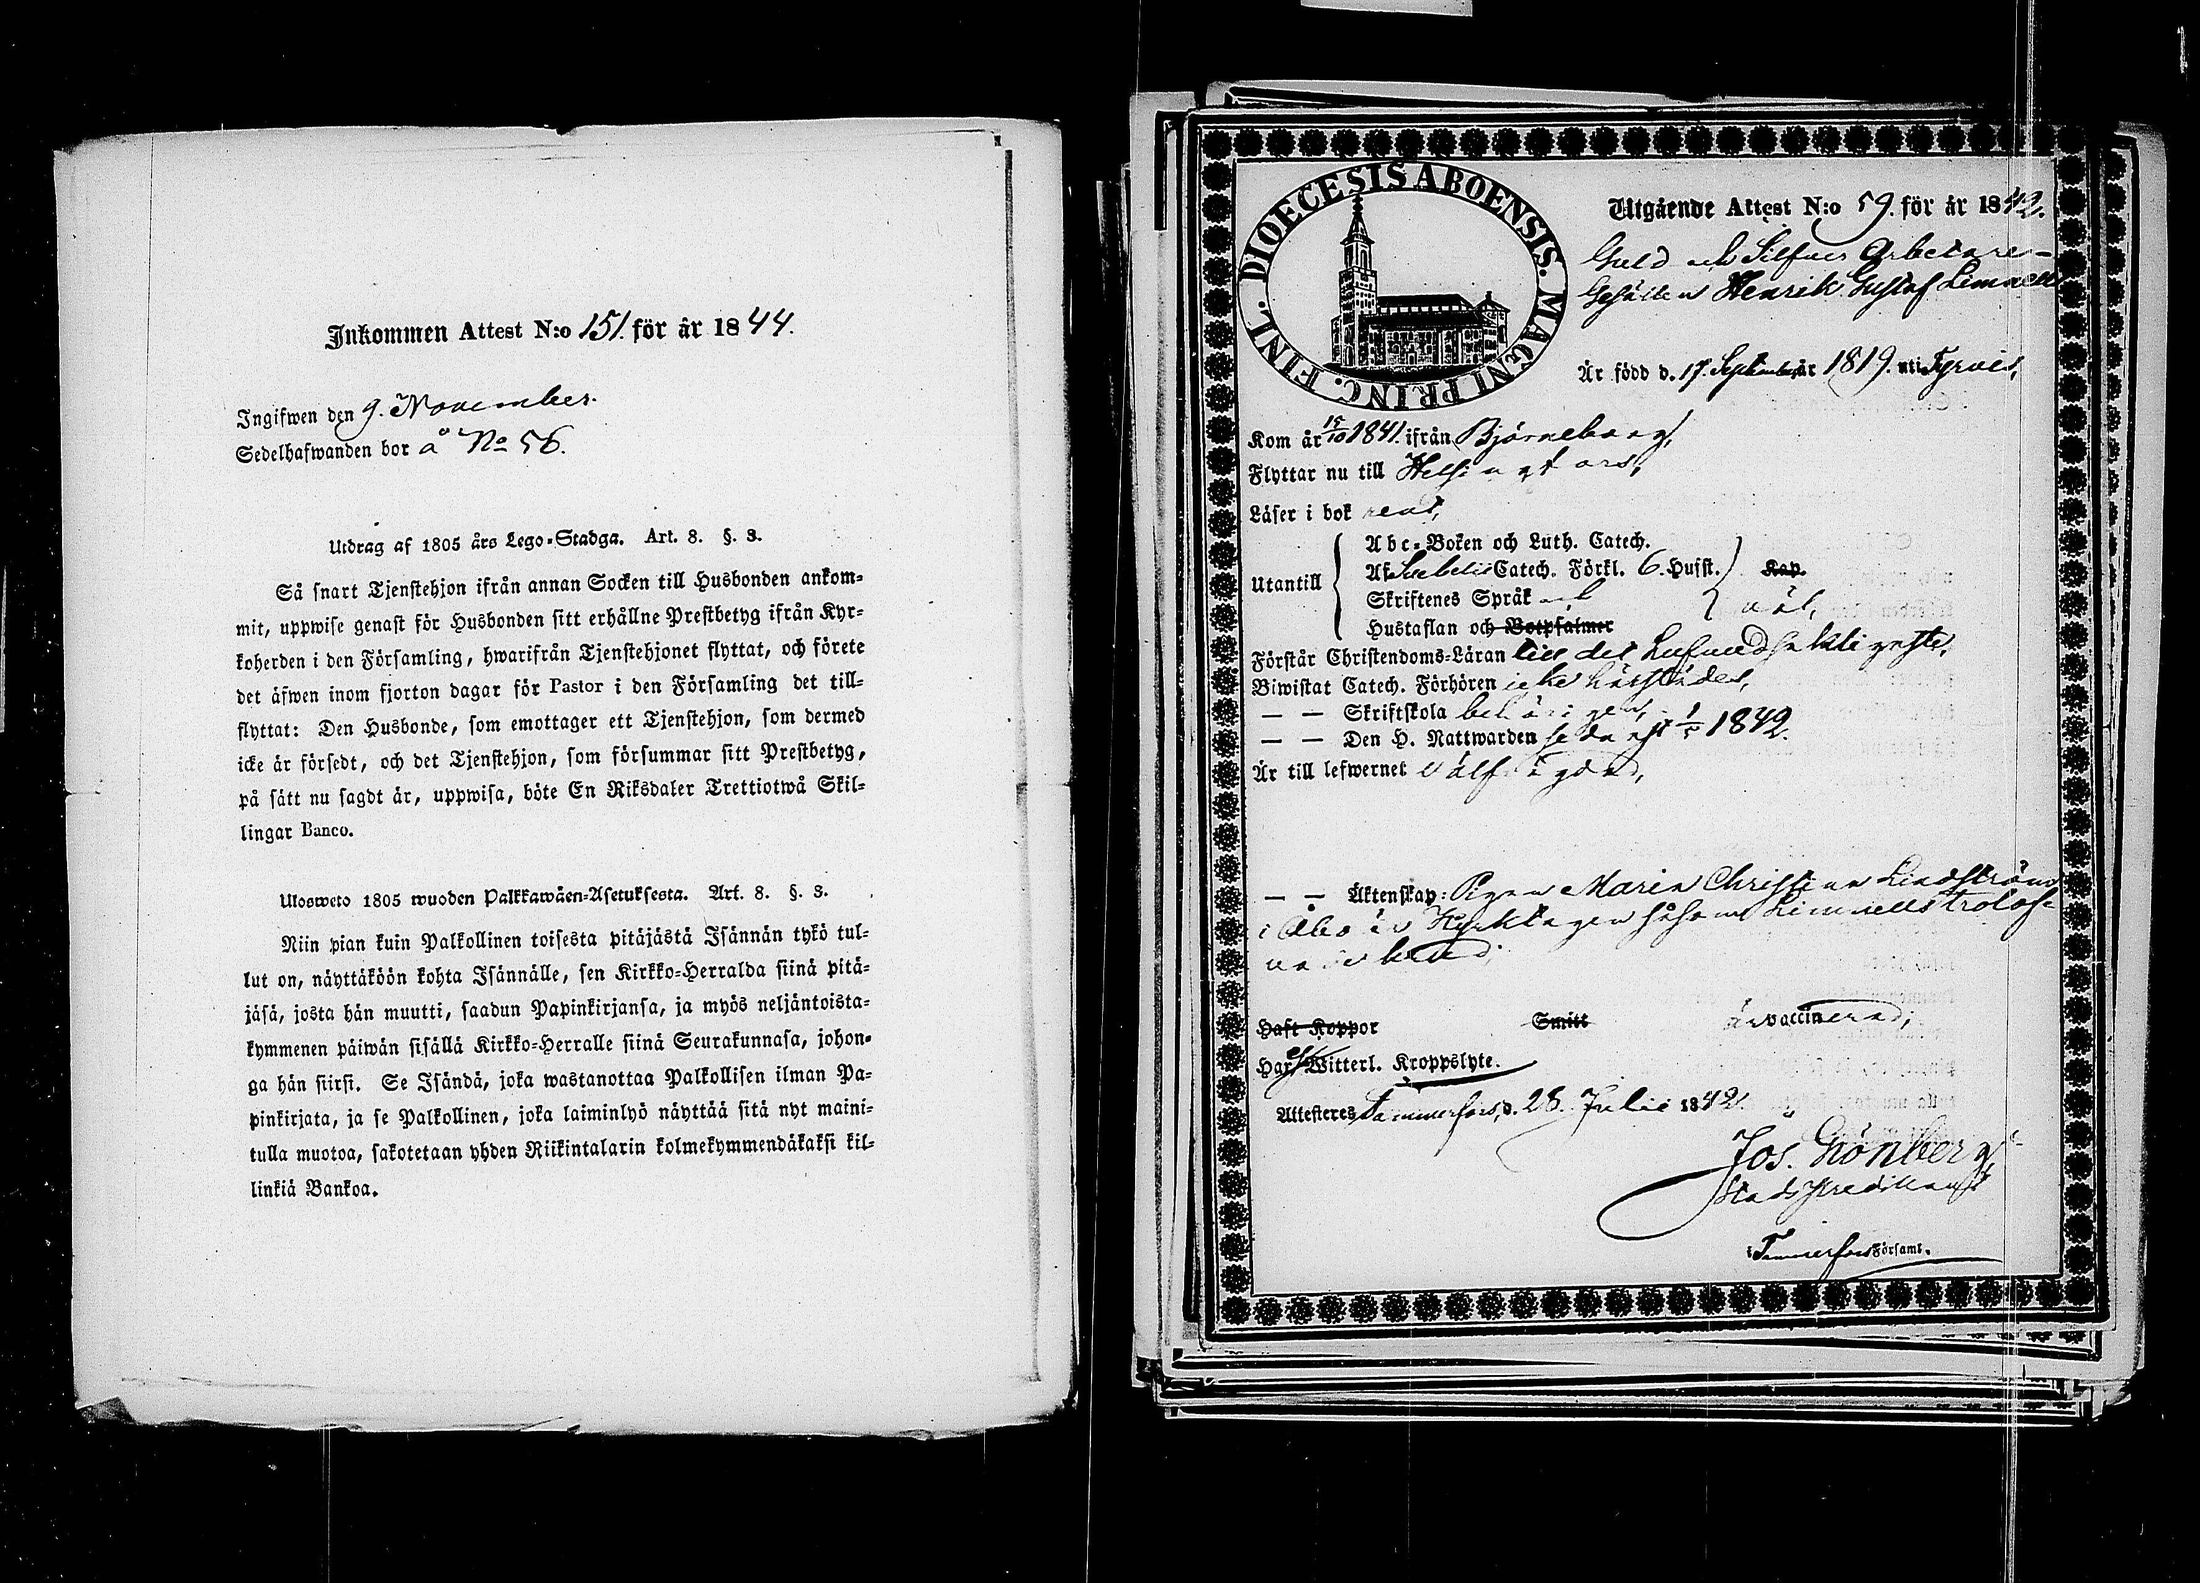 Inkommen Attest N:o 151. för år 1844.
Ingifwen den 9. November.
Sedelhafwanden bor å No 56.
Utdrag af 1805 års Lego-Stadga. Art. 8. §. 3.
Så snart Tjenstehjon ifrån annan Socken till Husbonden ankom-
mit, uppwise genast för Husbonden sitt erhållne Prestbetyg ifrån Kyr-
koherden i den Församling, hwarifrån Tjenstehjonet flyttat, och förete
det äfwen inom fjorton dagar för Pastor i den Församling det till-
flyttat: Den Husbonde, som emottager ett Tjenstehjon, som dermed
icke är försedt, och det Tjenstehjon, som försummar sitt Prestbetyg,
på sätt nu sagdt är, uppwisa, böte En Riksdaler Trettiotwå Skil-
lingar Banco.
Ulosweto 1805 wuoden Palkkawäen-Asetuksesta. Art. 8. §. 3.
Niin pian kuin Palkollinen toisesta pitäjästä Isännän tykö tul-
lut on, näyttäköön kohta Isännälle, sen Kirkko-Herralda siinä pitä-
jäsä, josta hän muutti, saadun Papinkirjansa, ja myös neljäntoista-
kymmenen päiwän sisällä Kirkko-Herralle siinä Seurakunnasa, johon-
ga hän siirsi. Se Isändä, joka wastanottaa Palkollisen ilman Pa-
pinkirjata, ja se Palkollinen, joka laiminlyö näyttää sitä nyt maini-
tulla muotoa, sakotetaan yhden Riikintalarin kolmekymmendäkaksi kil-
linkiä Bankoa.
DIOECESIS ABOENSIS. MAGNI PRINC. FINL.
Utgående Attest N:o 59. för år 1842.
Guld och Silfver Arbetare-
Gesällen Henrik Gustaf Limnell
Är född d. 17. September år 1819. uti Tyrvis,
Kom år 15/10 1841. ifrån Björneborg,
Flyttar nu till Helsingfors,
Läser i bok rent,
Utantill
Abc-Boken och Luth. Catech.
Af Svebelii Catech. Förkl. 6. Husst. Kap.
Skriftenes Språk och
Hustaflan och Botpsalmer
väl,
Förstår Christendoms-Läran till det hufvudsakligaste,
Biwistat Catech. Förhören icke härstädes,
— — Skriftskola behörigen,
— — Den H. Nattwarden sednast 1/5 1842.
Är till lefwernet välfrägdad,
— — Äktenskap: Pigan Maria Christina Lindström
i Åbo är Kyrktagen såsom Limnells trolof-
vade brud;
Haft Koppor Smitt är vaccinerad;
Har Witterl. Kroppslyte.
Attesteres Tammerfors, d. 28. Julii 1842.
Jos. Grönberg
Stads Predikant
i Tammerfors Församl.